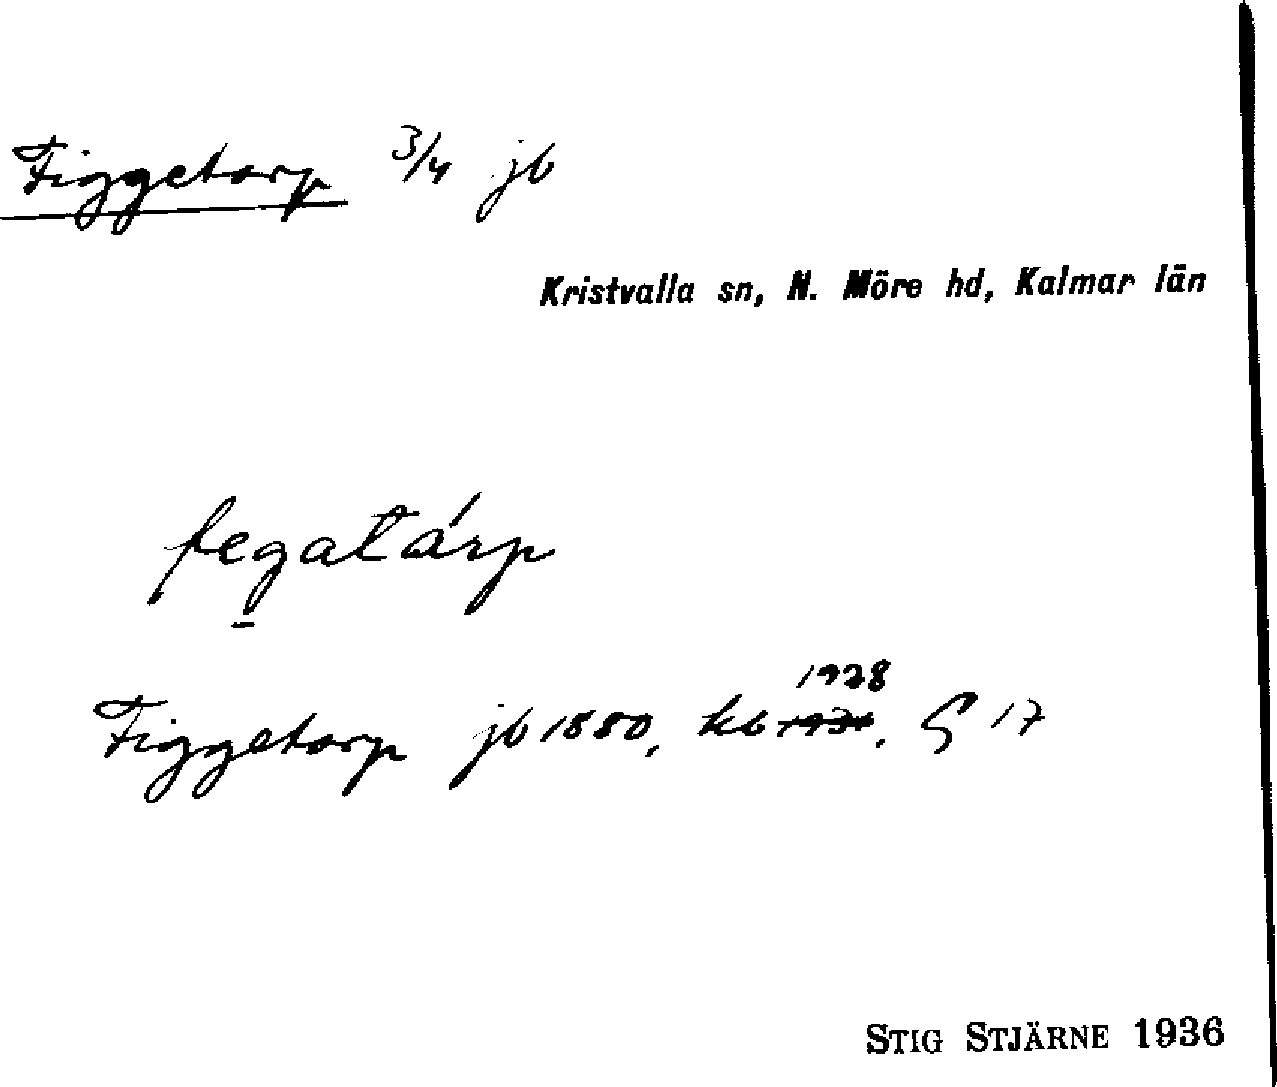 Figgetorp 3/4 jb
Kristvalla sn, N. Möre hd, Kalmar län
fegatárp
Figgetorp jb 1880, kb 1928, G 17
STIG STJÄRNE 1936